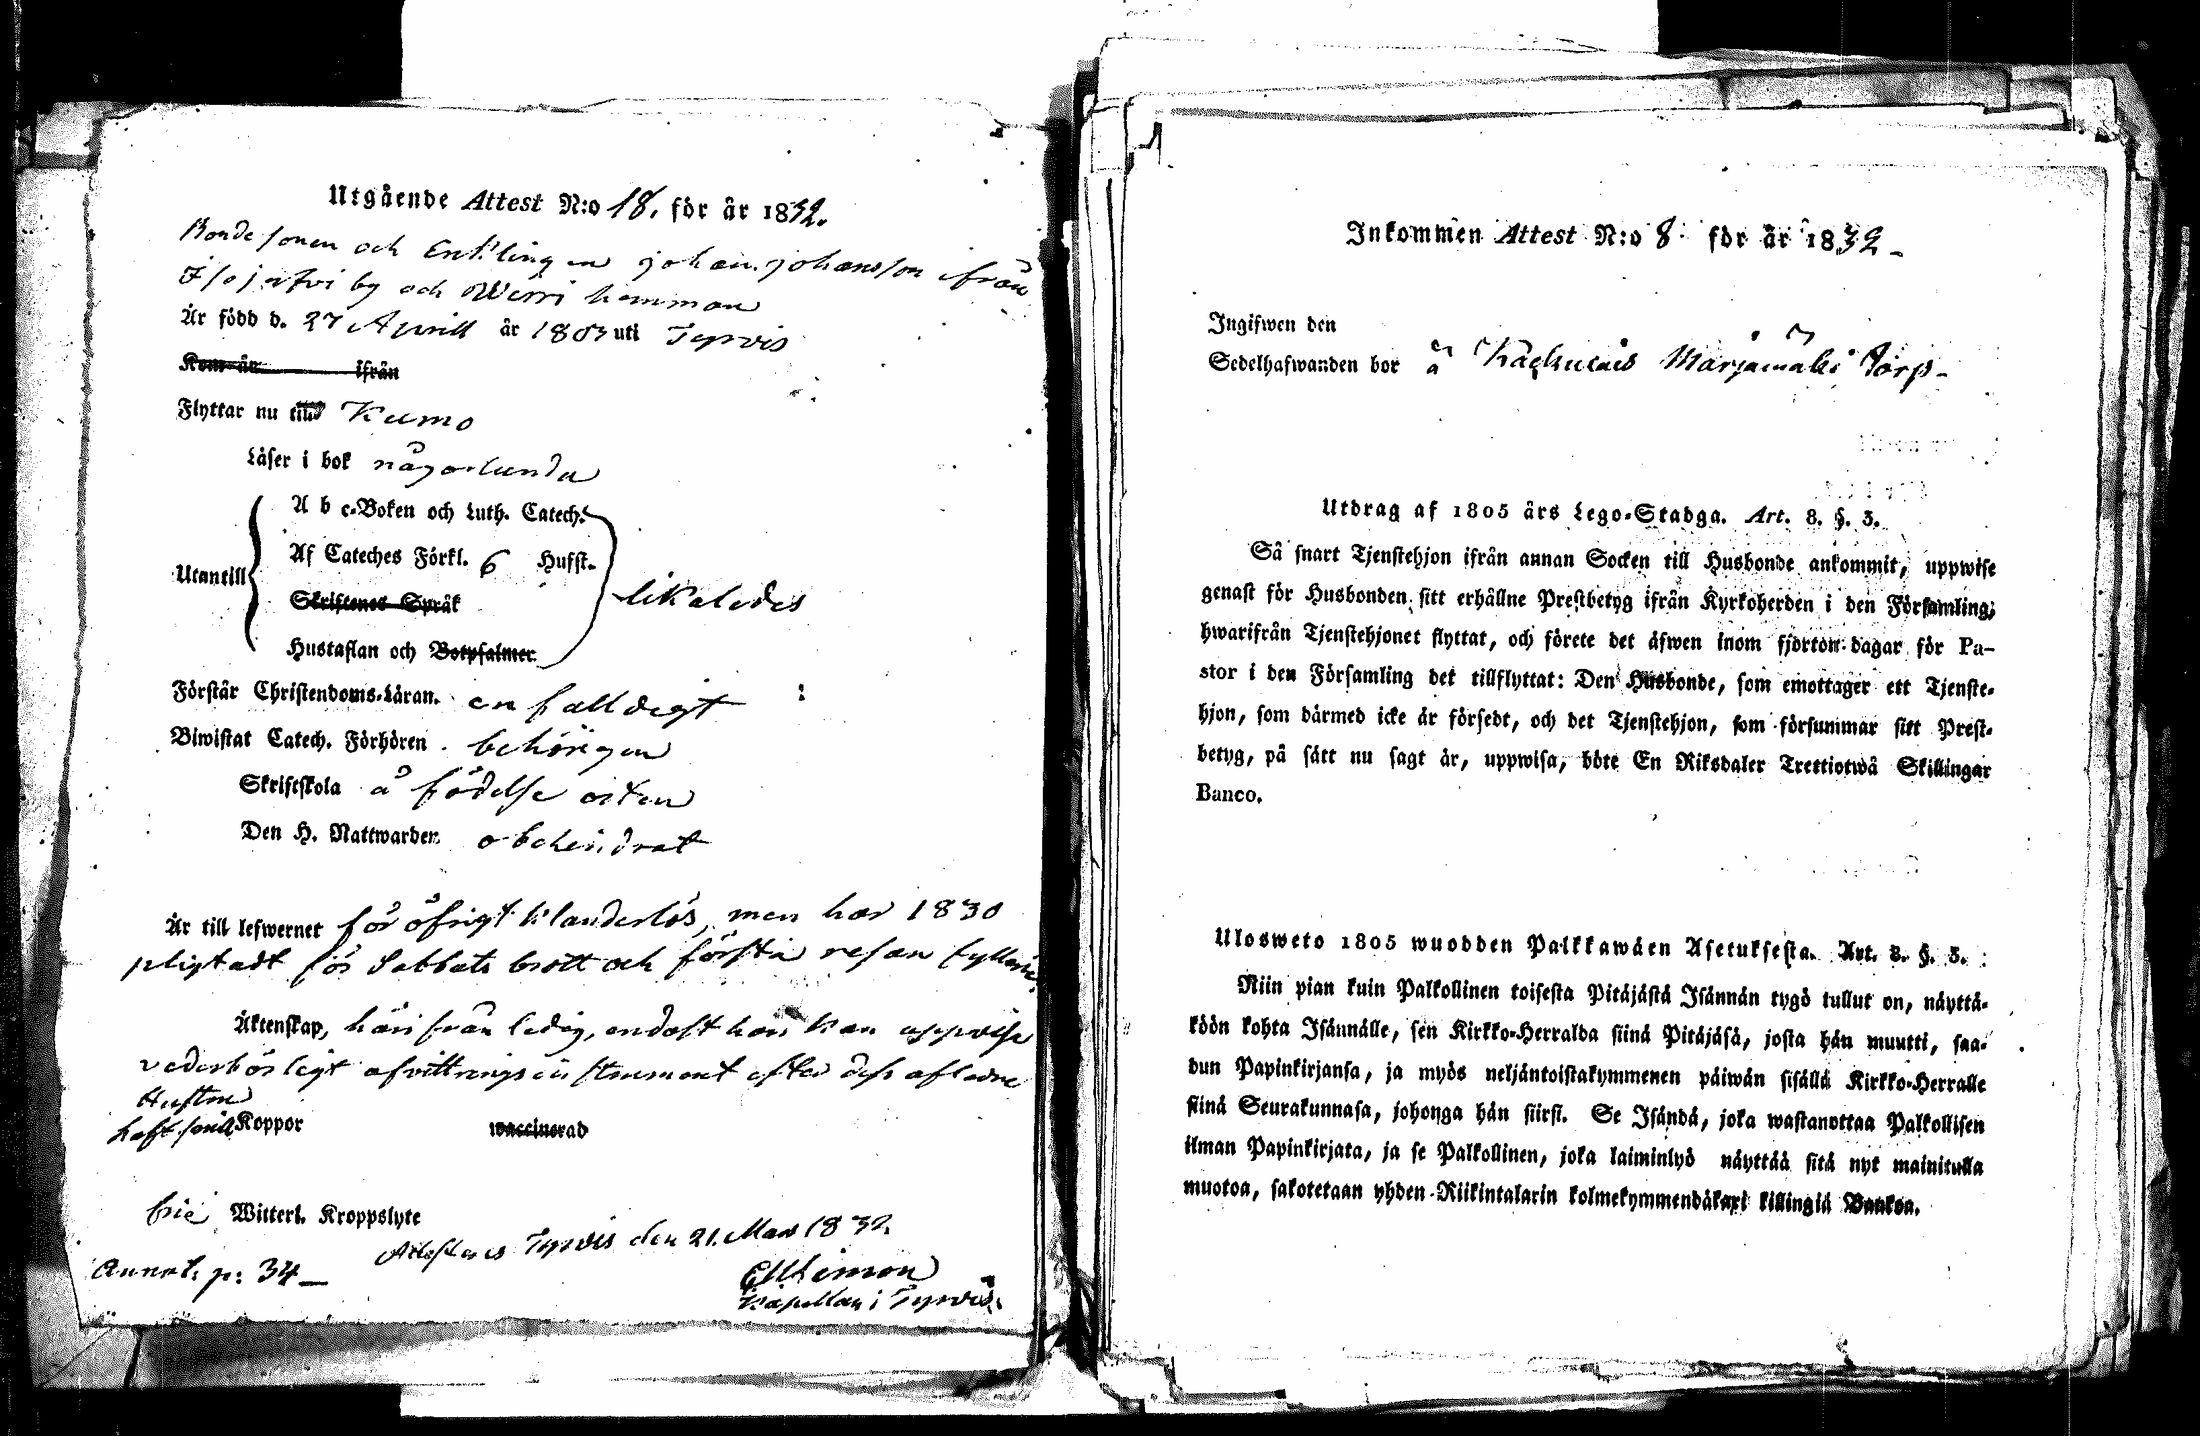 Utgående Attest N:o 18. för år 1832.
Bonde sonen och Enklingen Johan Johansson ifrån
Isojerfvi by och Werri hemman
Är född d. 27 Aprill år 1803 uti Tyrvis
Kom år ifrån
Flyttar nu till Kumo
Läser i bok någorlunda
Utantill
A b c-Boken och Luth. Catech.
Af Cateches Förkl. 6 Hufst.
Skriftenes Språk
likaledes
Hustaflan och Botpsalmer
Förstår Christendoms-Läran. enfalldigt
Biwistat Catech. Förhören behörigen
Skriftskola å födelse orten
Den H. Nattwarden obehindrat
Är till lefwernet för öfrigt klanderlös, men har 1830
pligtadt för Sabbats brott och första resan fylleri
Äktenskap, härifrån ledig, endast han kan uppvisa
vederbörligt afvittrings instrument efter dess afledne
Hustru
haft små Koppor waccinerad
frie Witterl. Kroppslyte
Attesteras Tyrvis den 21. Mars 1832
Annot: p: 34
Kapellan i Tyrvis.
Inkommen Attest N:o 8 för år 1832
Ingifwen den
Sedelhafwanden bor å Marjamäki Torp
Utdrag af 1805 års Lego-Stadga. Art. 8. §. 3.
Så snart Tjenstehjon ifrån annan Socken till Husbonde ankommit, uppwise
genast för Husbonden sitt erhållne Prestbetyg ifrån Kyrkoherden i den Församling,
hwarifrån Tjenstehjonet flyttat, och förete det äfwen inom fjorton dagar för Pa-
stor i den Församling det tillflyttat: Den Husbonde, som emottager ett Tjenste-
hjon, som dårmed icke är försedt, och det Tjenstehjon, som försummar sitt Prest-
betyg, på sätt nu sagt är, uppwisa, böte En Riksdaler Trettiotwå Skillingar
Banco.
Ulosweto 1805 wuodden Palkkawäen Asetuksesta. Art. 8. §. 3.
Niin pian kuin Palkollinen toisesta Pitäjästä Isännän tygö tullut on, näyttä-
köön kohta Isännälle, sen Kirkko-Herralda siinä Pitäjäsä, josta hän muutti, saa-
dun Papinkirjansa, ja myös neljäntoistakymmenen päiwän sisällä Kirkko-Herralle
siinä Seurakunnasa, johonga hän siirsi. Se Isändä, joka wastanottaa Palkollisen
ilman Papinkirjata, ja se Palkollinen, joka laiminlyö näyttää sitä nyt mainitulla
muotoa, sakotetaan yhden Riikintalarin kolmekymmendäkaxi killingiä Bankoa.